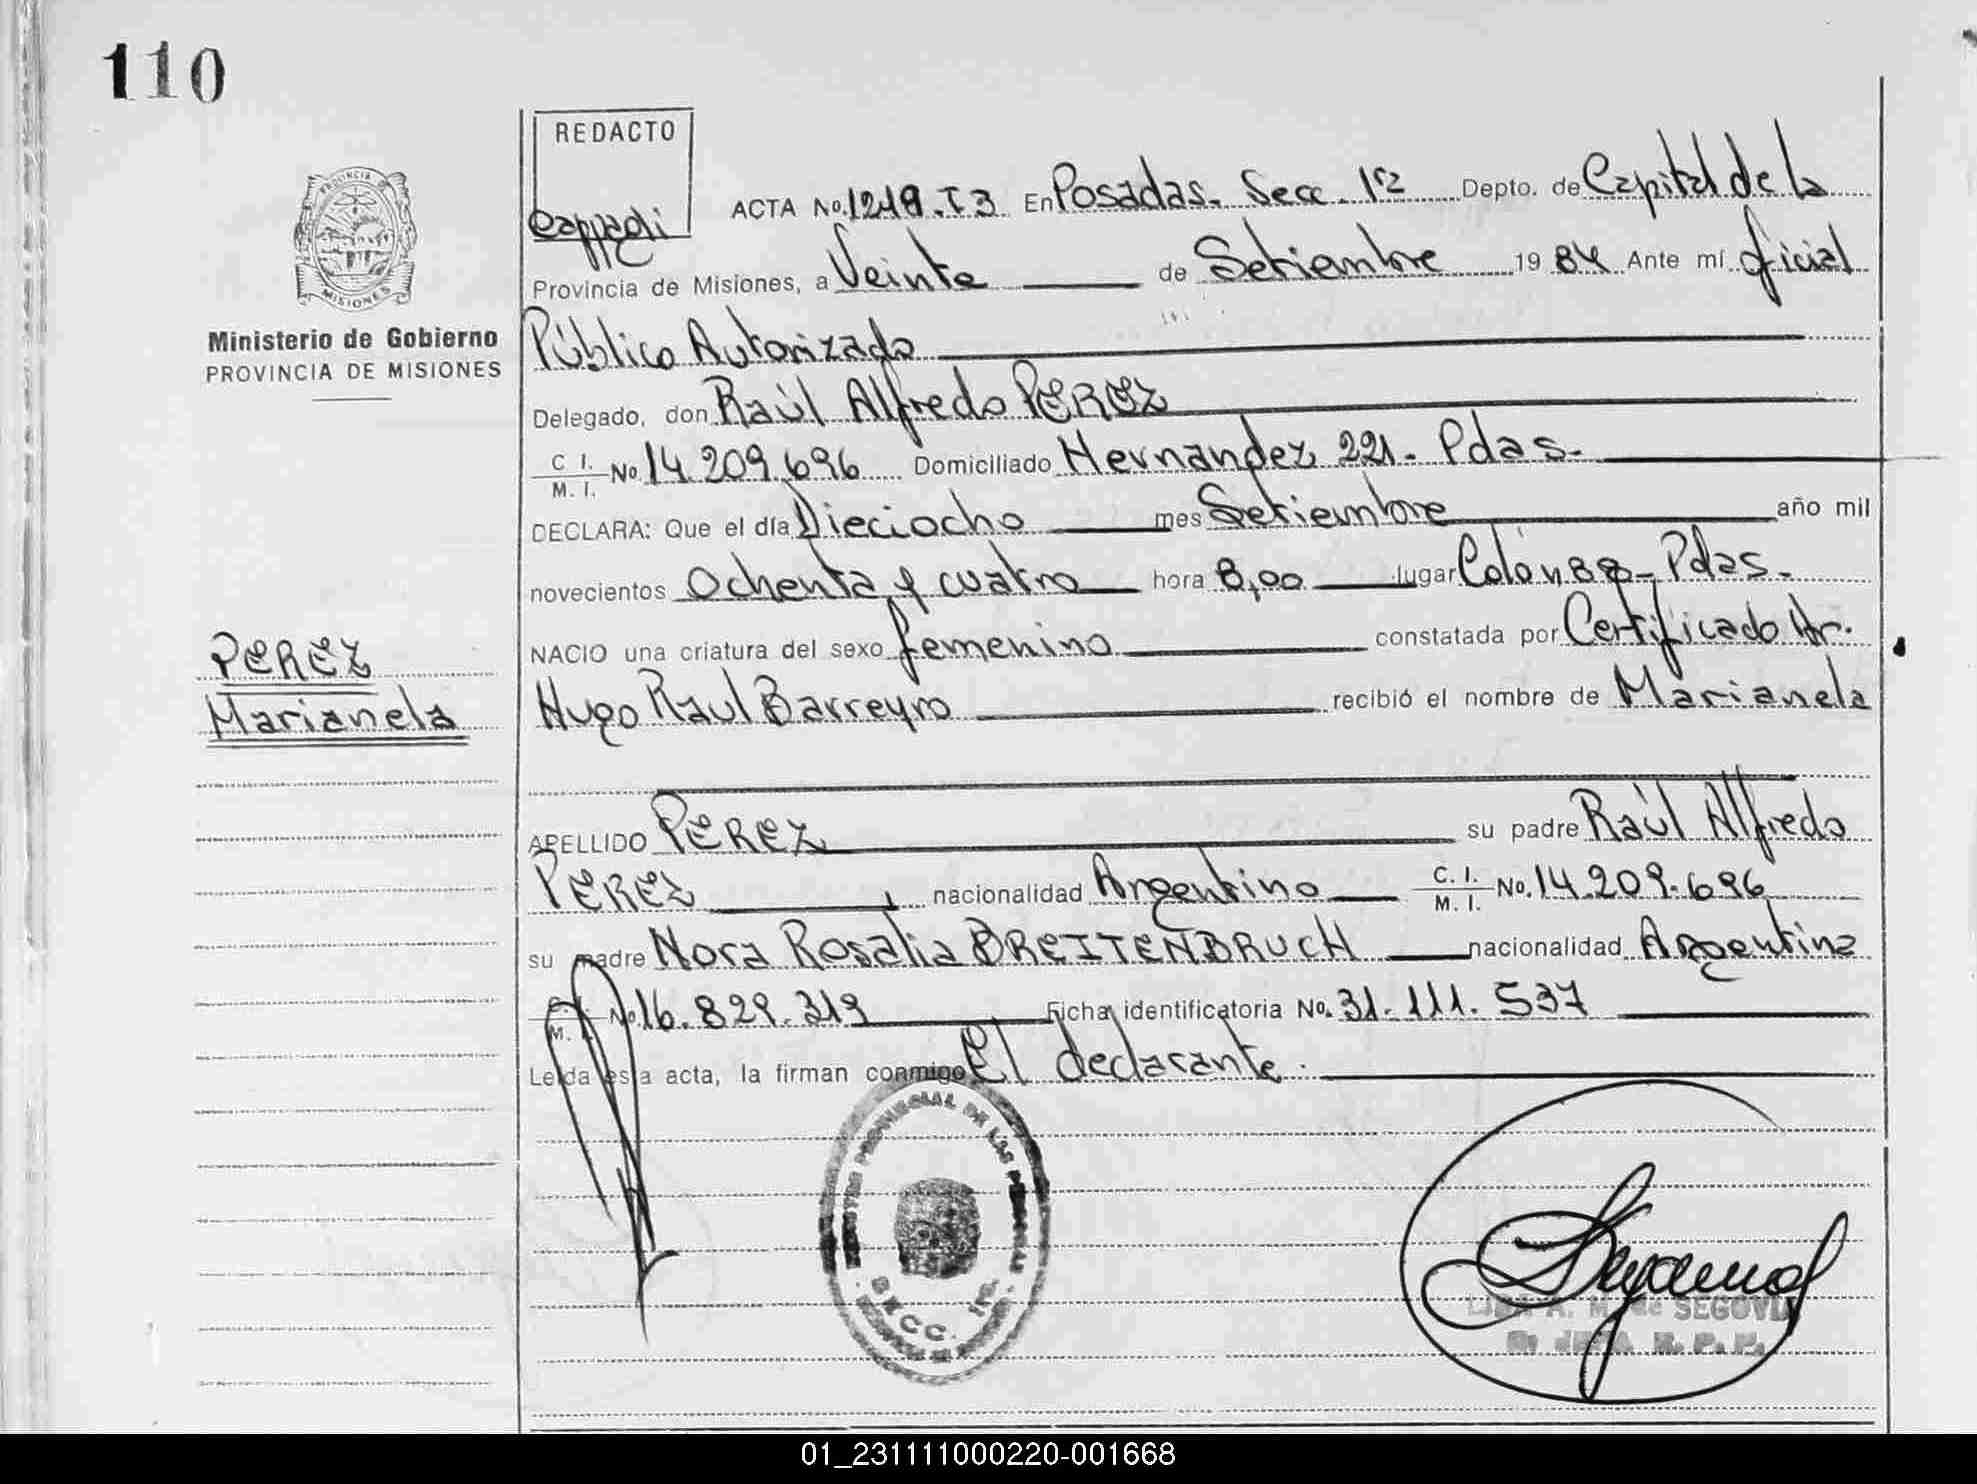 110
REDACTO
Cappagli
PROVINCIA DE
MISIONES
Ministerio de Gobierno
PROVINCIA DE MISIONES
ACTA No. 1249. T3 En Posadas. Secc. 1ra Depto. de Capital de la
Provincia de Misiones, a Veinte de Setiembre 19 84 Ante mí oficial
Público Autorizado
Delegado, don Raúl Alfredo PEREZ
C. I. M. I. No. 14.209.696 Domiciliado Hernandez 221. Pdas.
DECLARA: Que el día Dieciocho mes Setiembre año mil
novecientos Ochenta y cuatro hora 8,00 lugar Colón 88 - Pdas.
NACIO una criatura del sexo femenino constatada por Certificado Dr.
Hugo Raul Barreyro recibió el nombre de Marianela
APELLIDO PEREZ su padre Raúl Alfredo
PEREZ, nacionalidad Argentino C. I. M. I. No. 14.209.696
su madre Nora Rosalia BREITENBRUCH nacionalidad Argentina
M. I. No. 16.829.319 Ficha identificatoria No. 31.111.537
Leída esta acta, la firman conmigo El declarante.
PEREZ
Marianela
PROVINCIAL DE LAS PERSONAS
LIDA A. M. de SEGOVIA
JEFA R. P. P.
01_231111000220-001668